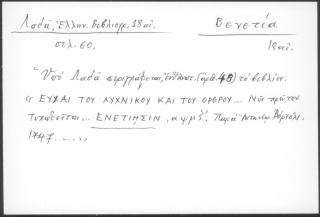 Λαδᾶ, Ἑλλην. Βιβλιογρ. 18 αἰ.
Βενετία
σελ. 60.
18 αἰ.
Ὑπὸ Λαδᾶ περιγράφεται, 48) τὸ βιβλίον.
" ΕΥΧΑΙ ΤΟΥ ΛΥΧΝΙΚΟΥ ΚΑΙ ΤΟΥ ΟΡΘΡΟΥ ... Νῦν πρῶτον
Τυπωθεῖσαι ... ΕΝΕΤΙΗΣΙΝ, αψμζ'. Παρὰ Ἀντωνίῳ Βόρτολι.
1747. .....